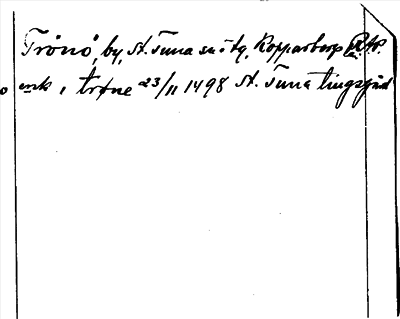 Trönö, by, St. Tuna sn o tg, Kopparbergs
i trøne 23/11 1498 St. Tuna tingsgård